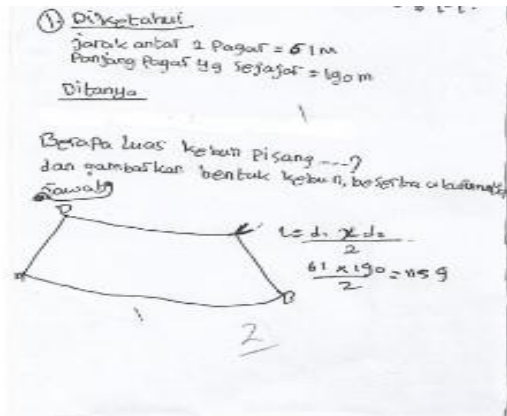 ① Diketahui
jarak antar 2 Pagar = 61m
Panjang Pagar yg sejajar = 190m
Ditanya
Berapa Luas kebun Pisang ----?
dan gambarkan bentuk kebun, beserta
Jawab
D
L = d₁ x d₂
2
61 x 190 = 1159
2
B
2